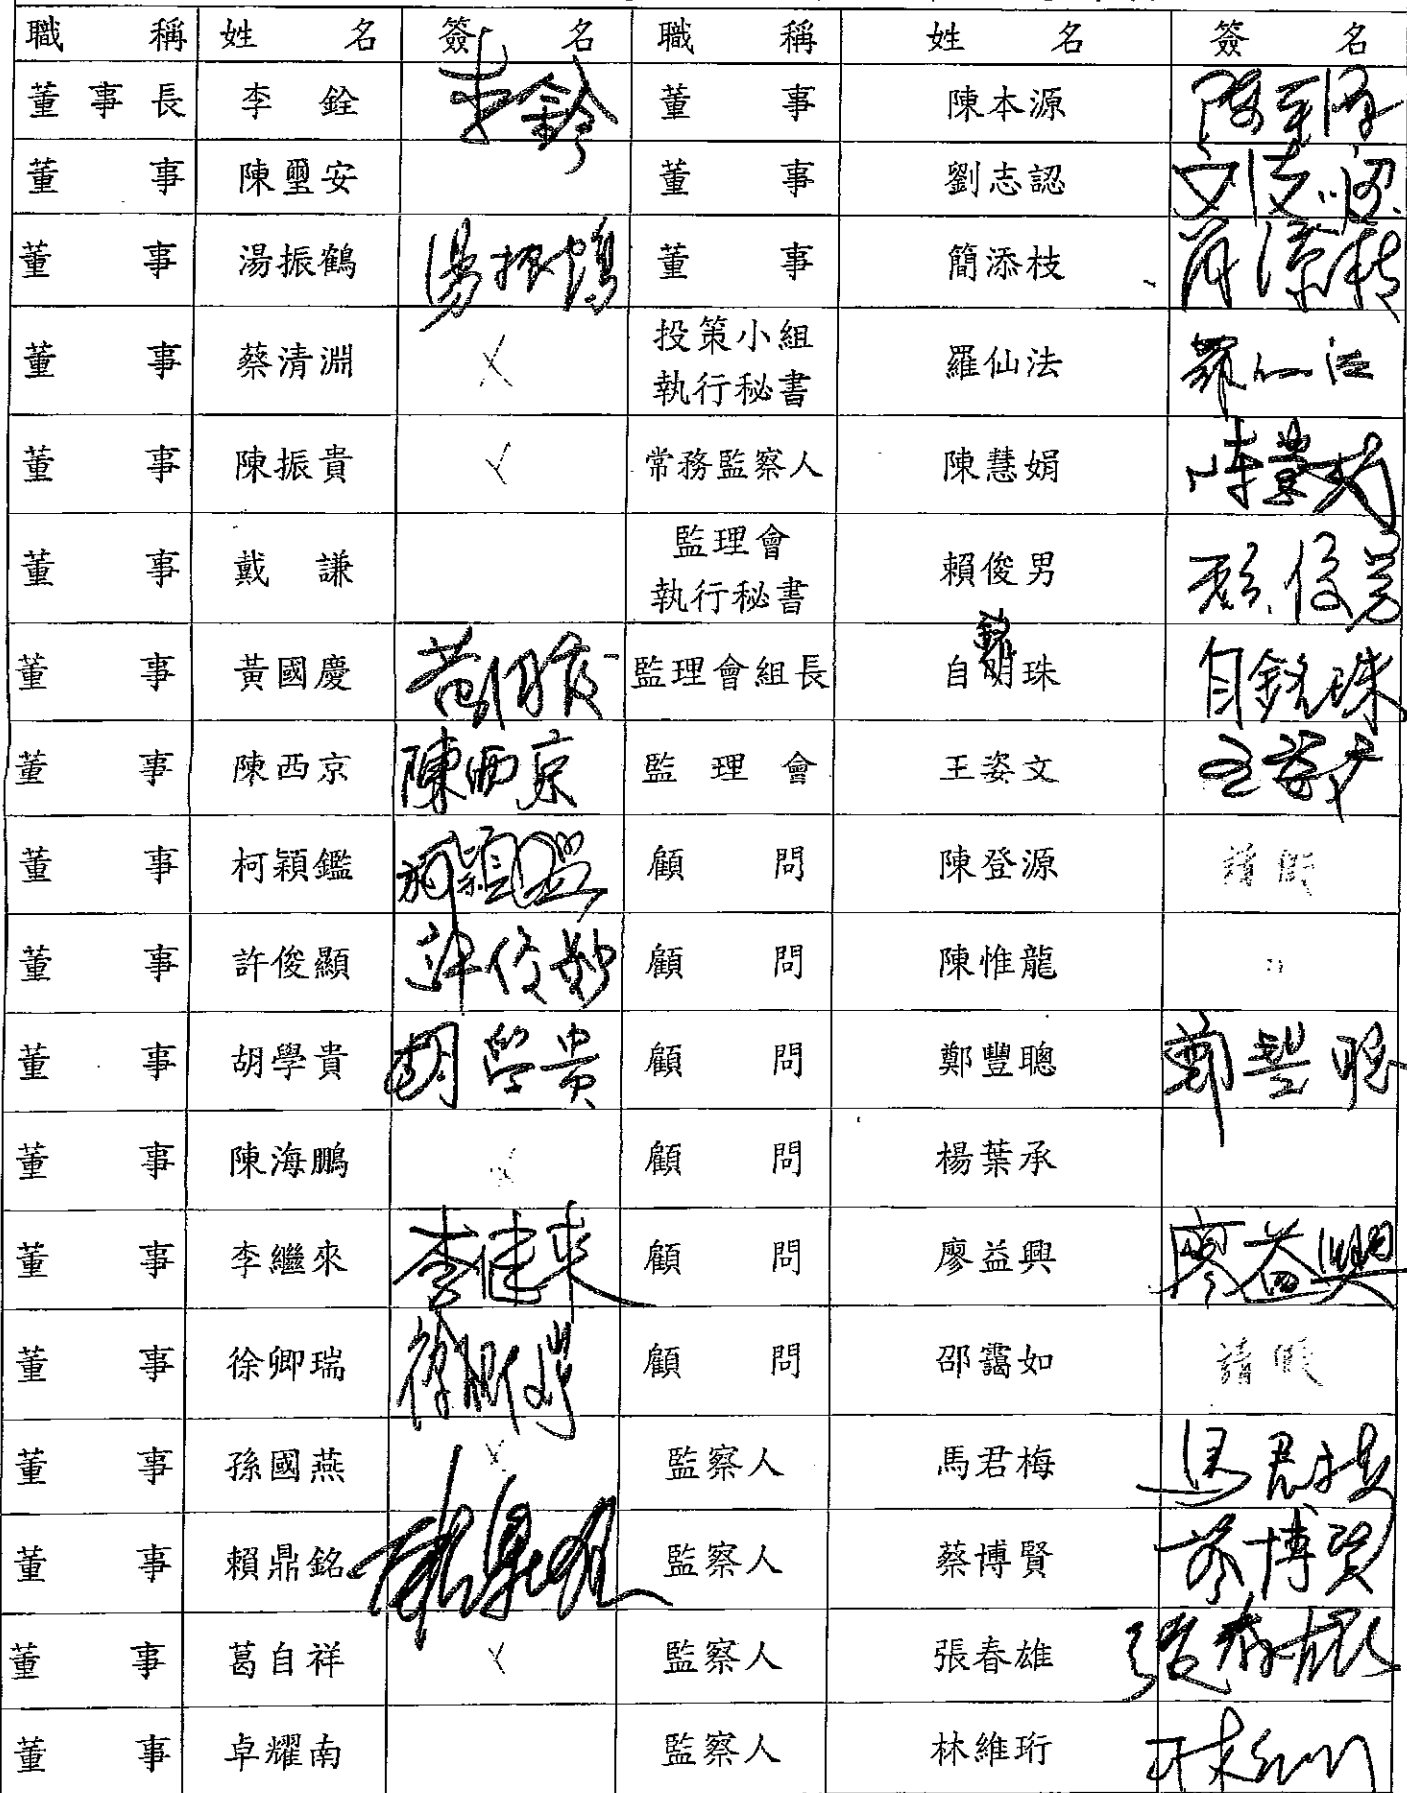 職稱 姓名 簽名 職稱 姓名 簽名
董事長 李銓 李銓 董事 陳本源 陳本源
董事 陳璽安 董事 劉志認 刘志認
董事 湯振鶴 湯振鶴 董事 簡添枝 簡添枝
董事 蔡清淵 投策小組執行秘書 羅仙法 羅仙法
董事 陳振貴 常務監察人 陳慧娟 陳慧娟
董事 戴謙 監理會執行秘書 賴俊男 賴俊男
董事 黃國慶 黃國慶 監理會組長 自銘珠 自銘珠
董事 陳西京 陳西京 監理會 王姿文 王姿文
董事 柯穎鑑 柯穎鑑 顧問 陳登源 請假
董事 許俊顯 許俊顯 顧問 陳惟龍 〃
董事 胡學貴 胡學貴 顧問 鄭豐聰 鄭豐聰
董事 陳海鵬 顧問 楊葉承
董事 李繼來 李繼來 顧問 廖益興 廖益興
董事 徐卿瑞 顧問 邵靄如 請假
董事 孫國燕 監察人 馬君梅 馬君梅
董事 賴鼎銘 賴鼎銘 監察人 蔡博賢 蔡博賢
董事 葛自祥 監察人 張春雄 張春雄
董事 卓耀南 監察人 林維珩 林維珩